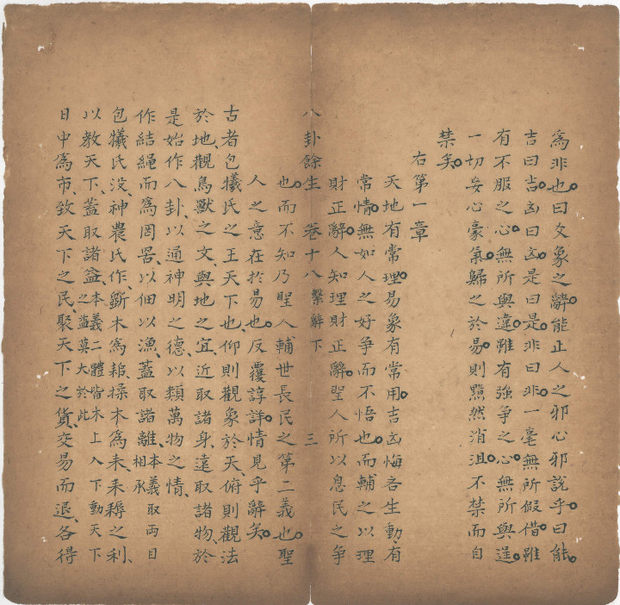 爲非也曰爻象之辭能止人之邪心邪說乎曰能
吉曰吉凶曰凶是曰是非曰非一毫無所假借雖
有不服之心無所與違雖有強争之心無所與逞
一切妄心豪氣歸之於易則黯然消沮不禁而自
禁矣
右第一章
天地有常理易象有常用吉凶悔吝生動有
常情無如人之好争而不悟也而輔之以理
財正辭人知理財正辭聖人所以息民之争
八卦餘生 卷十八 繫辭下 三
也而不知乃聖人輔世長民之第二義也聖
人之意在於易也反覆諄諄情見乎辭矣
古者包犧氏之王天下也仰則觀象於天俯則觀法
於地觀鳥獸之文與地之宜近取諸身遠取諸物於
是始作八卦以通神明之德以類萬物之情
作結繩而爲罔罟以佃以漁蓋取諸離本義取两目相承
包犧氏没神農氏作斲木爲耜揉木爲耒耒耨之利
以教天下蓋取諸益本義二體皆木上入下動天下之益莫大於此
日中爲市致天下之民聚天下之貨交易而退各得